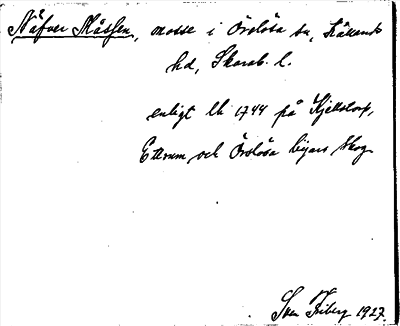 Näfver Måssen, mosse i Örslösa sn, Kållands
hd, Skarab. l.
enligt lk 1744 på Kjellstorp,
Ettrum och Örslösa byars skog.
Sven Friberg 1927.